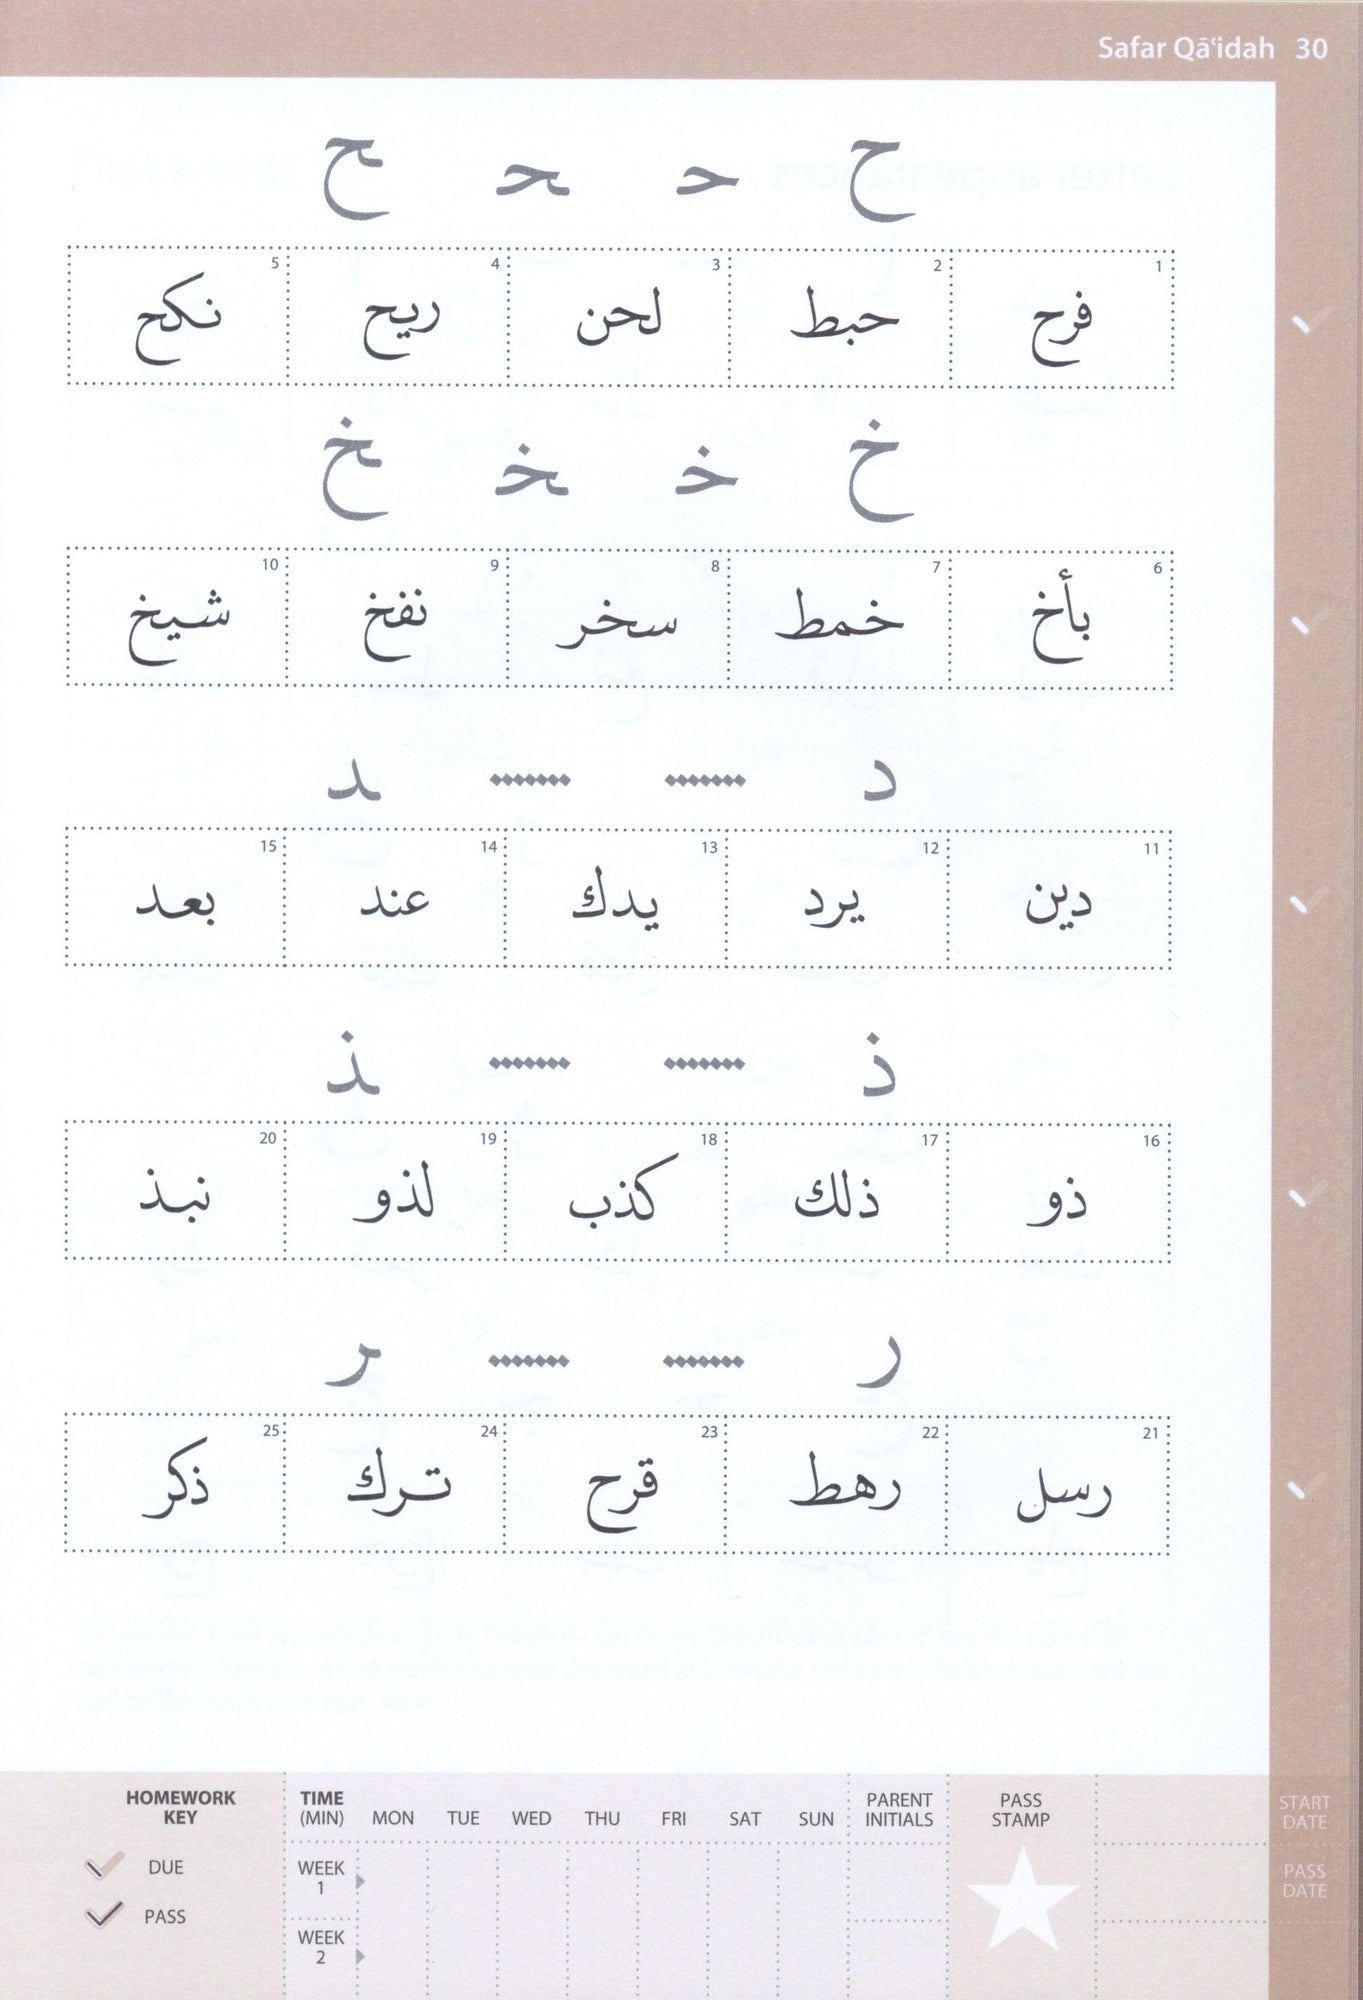 Safar Qāʿidah 30
ح حـ ـحـ ـح
1 2 3 4 5
فرح حبط لحن ريح نكح
خ خـ ـخـ ـخ
6 7 8 9 10
بأخ خمط سخر نفخ شيخ
د ـد
11 12 13 14 15
دين يرد يدك عند بعد
ذ ـذ
16 17 18 19 20
ذو ذلك كذب لذو نبذ
ر ـر
21 22 23 24 25
رسل رهط قرح ترك ذكر
HOMEWORK KEY
DUE
PASS
TIME (MIN) MON TUE WED THU FRI SAT SUN
WEEK 1
WEEK 2
PARENT INITIALS
PASS STAMP
START DATE
PASS DATE